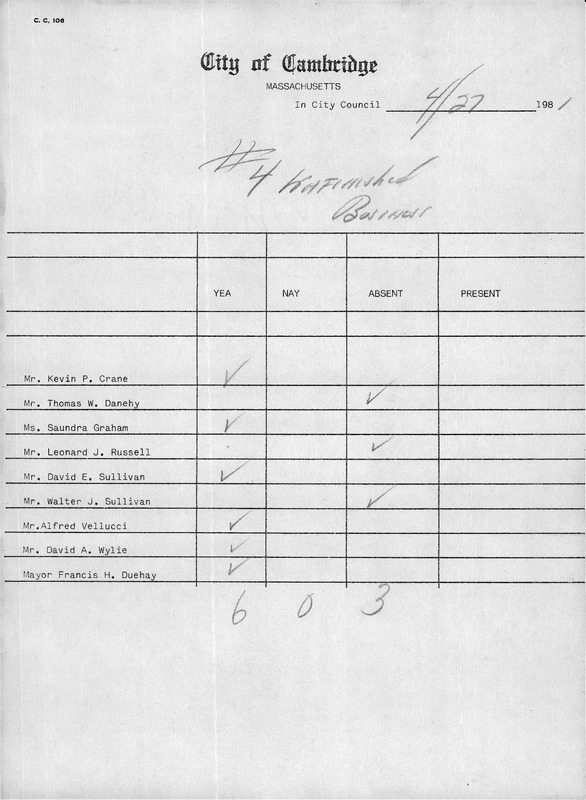 C. C. 106
City of Cambridge
MASSACHUSETTS
In City Council 4/27 1981
#4 Unfinished
Business
YEA NAY ABSENT PRESENT
Mr. Kevin P. Crane ✓
Mr. Thomas W. Danehy ✓
Ms. Saundra Graham ✓
Mr. Leonard J. Russell ✓
Mr. David E. Sullivan ✓
Mr. Walter J. Sullivan ✓
Mr.Alfred Vellucci ✓
Mr. David A. Wylie ✓
Mayor Francis H. Duehay ✓
6 0 3